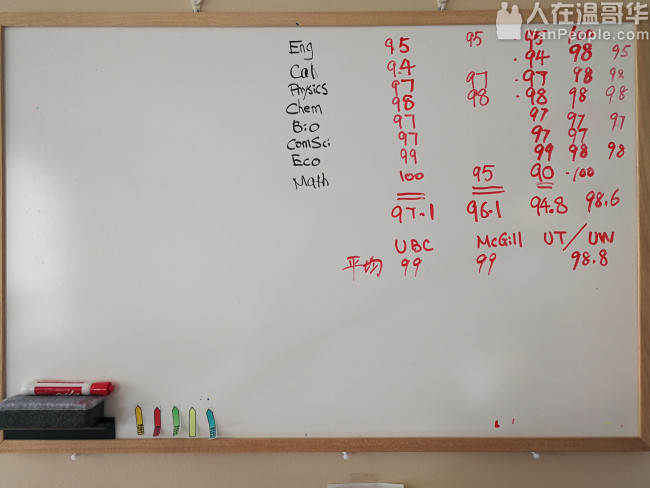 人在温哥华
VanPeople.com
Eng 95 95 95
Cal 94 .94 98 95
Physics 97 97 .97 98 98
Chem 98 98 .98 98 98
Bio 97 97 97 97
ComSci 97 97 97
Eco 99 99 98 98
Math 100 95 90 .100
97.1 96.1 94.8 98.6
UBC McGill UT/UW
平均 99 99 98.8